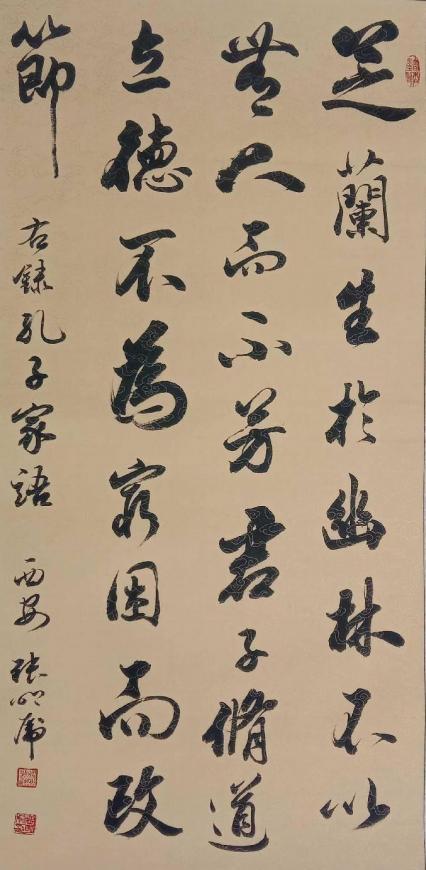 芝蘭生於幽林不以
無人而不芳君子脩道
立德不為窮困而改
節 右錄孔子家語 西安 張